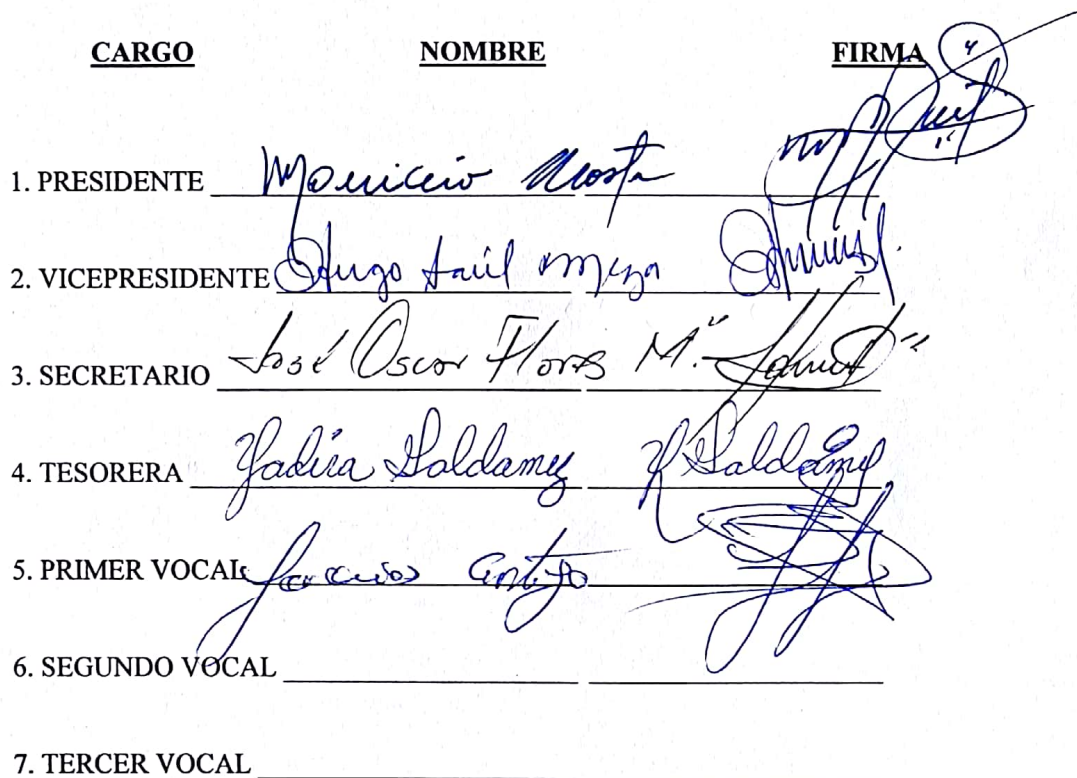 CARGO NOMBRE FIRMA
1. PRESIDENTE Mauricio Acosta
2. VICEPRESIDENTE Hugo Saúl Meza
3. SECRETARIO José Oscar Flores M.
4. TESORERA Yadira Saldamez Y Saldamez
5. PRIMER VOCAL
6. SEGUNDO VOCAL
7. TERCER VOCAL